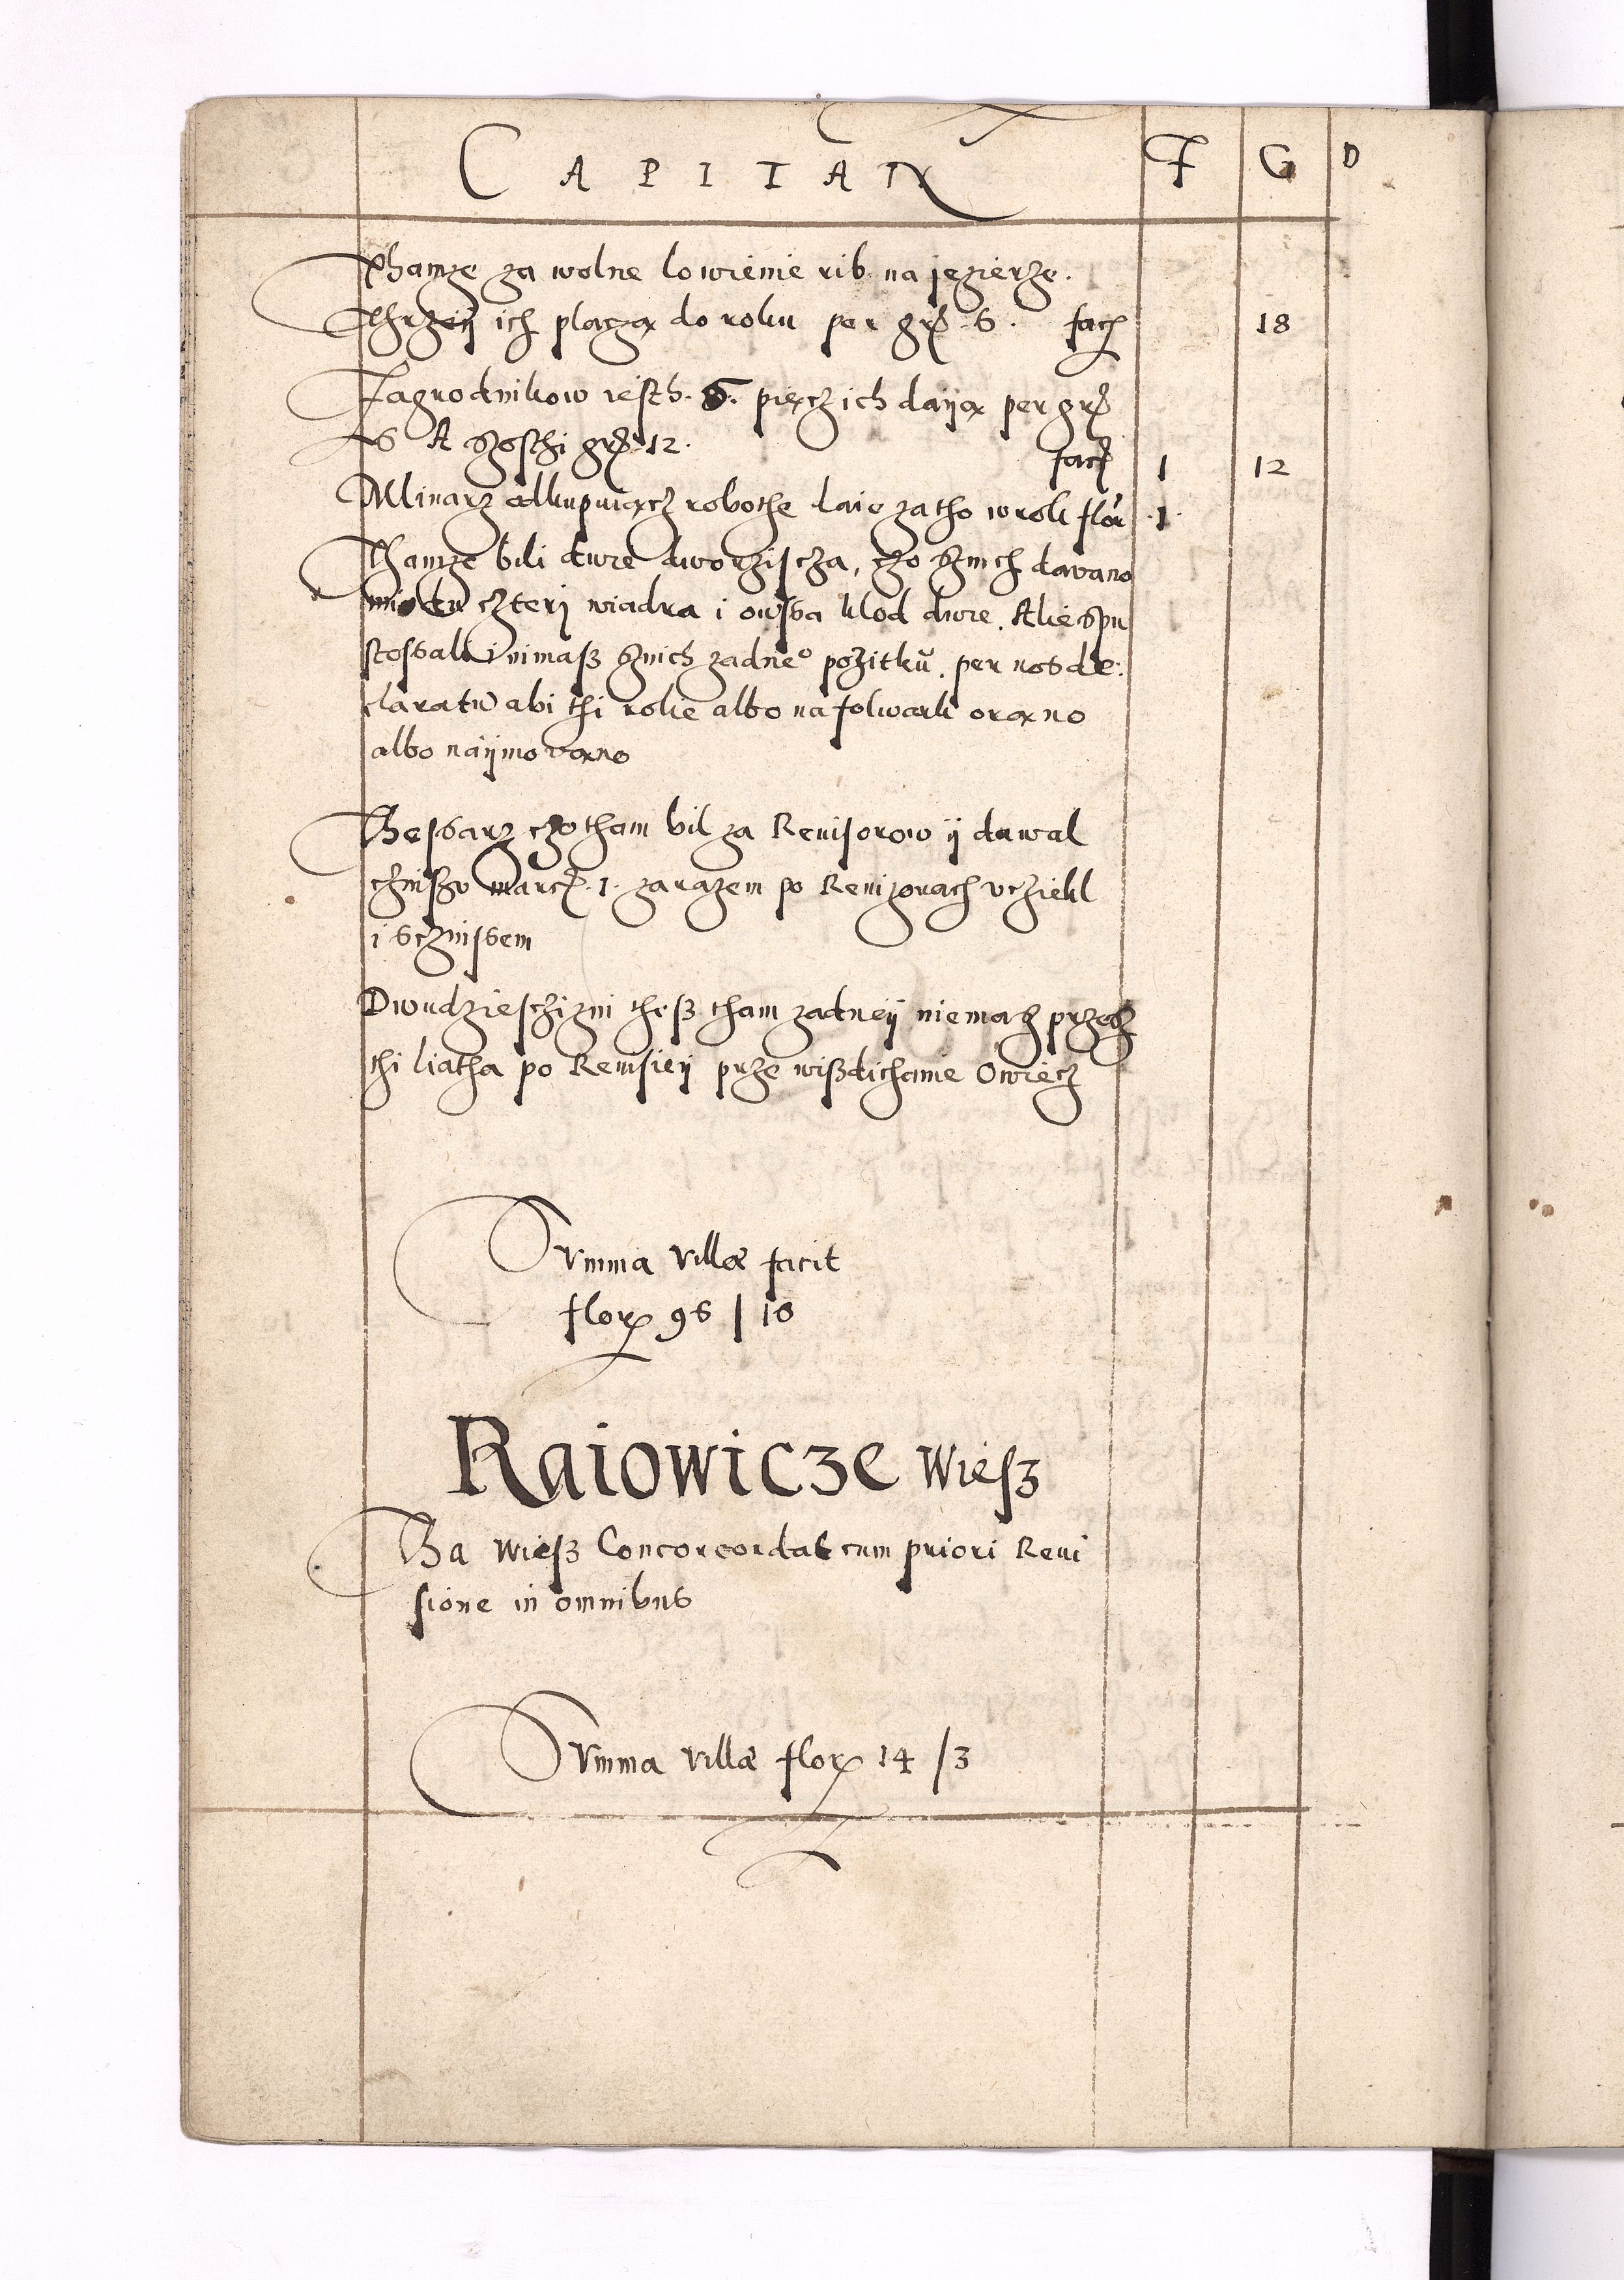 CAPITAN F G D
Thamze za wolne lowienie rib na jezierze.
Thrzeij ich placzą do roku per grꝭ 6. facꝭ 18
Zagrodnikow iesth. 6. pięcz ich daiją per grꝭ
6 A szosthi grꝭ 12. facꝭ 1 12
Mlinarz odkupuiącz robothe daie zatho wrok flor 1
Thamze bili dwie dworziscza, czo sznich dawano
miodu czteri wiadra i owssa klod dwie. Alie spu
stossali i nimasz sznich zadneo pożitku. per nos de:
claratū abi thi rolie albo na folwark orano
albo naijmowano
Thessarz czo tham bil za Reuisorow ij dawal
czinszu marcꝭ 1. zarazem po Reuizorach vcziekl
i sczinssem
Dwudzieschizni thesz tham zadneij niemasz przesz
thi liatha po Reuisieij prze wiszdichanie Owiecz
Summa villæ facit
florꝭ 96 / 18
Raiowicze Wiesz
Tha wiesz Concorcordat cum priori Reui
sione in omnibus
Summa villæ florꝭ 14 / 3